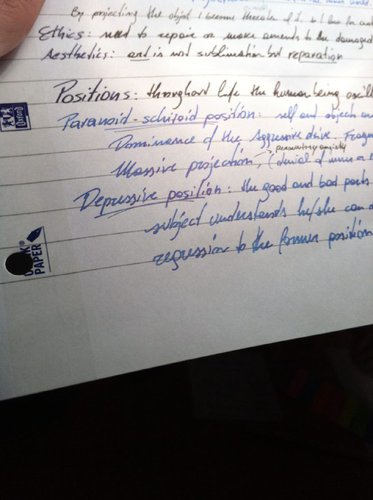 By projecting the object I become
Ethics: need to repair or make amends to the damaged
Aesthetics: end is not sublimation but reparation
Positions: throughout life the human being oscill
Paranoid-schizoid position: self and objects are
Dominence of the Aggressive drive. Fragm
persecutory anxiety
Massive projection, (denial of inner a
Depressive position: the good and bad parts
subject understands he/she can d
regression to the former position
PAPER